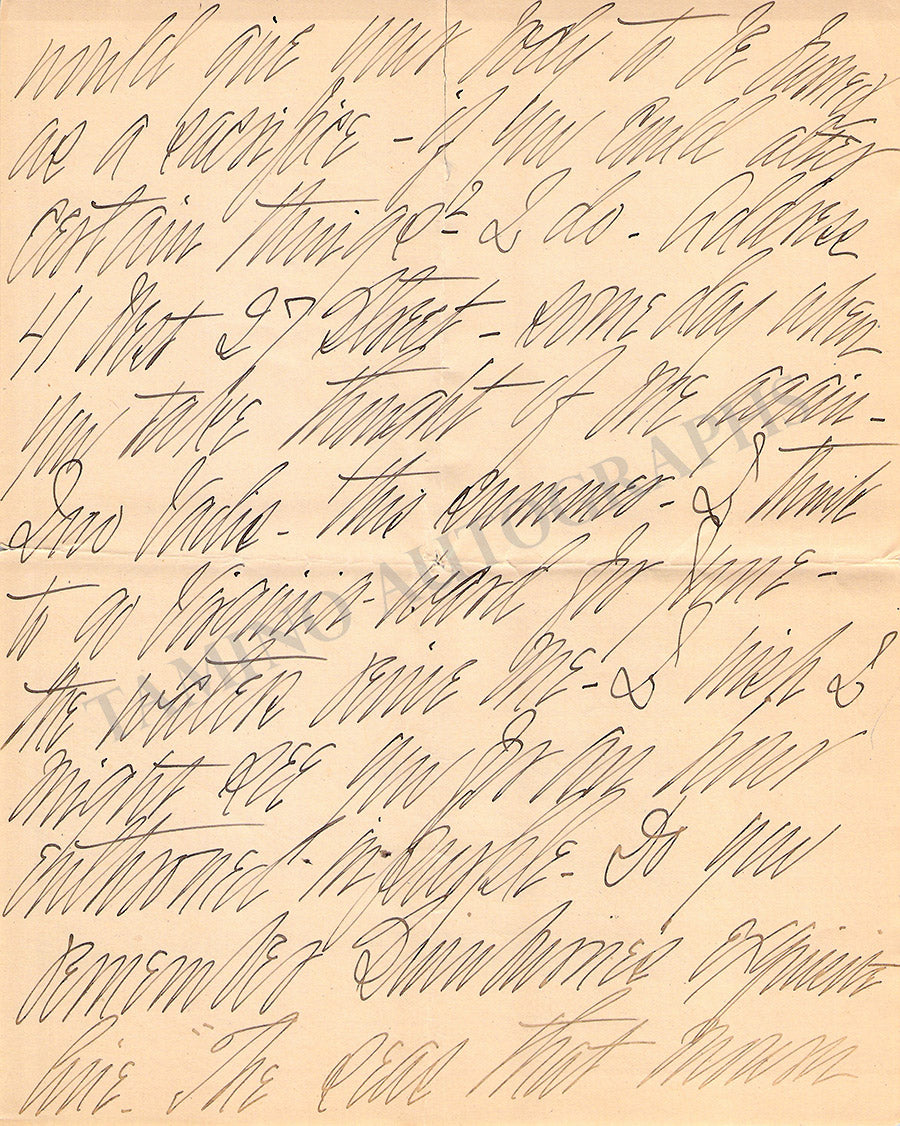 would give your body to be burned
as a sacrifice - if you could alter
certain things? I do - Address
41 West 27 Street - some day when
you take thought of me again -
Quo Vadis - this summer - I think
to go Virginia-ward for June -
the me - I wish I
might see you for an hour
enthroned in purple - Do you
remember Swinburne's exquisite
line - "The seas that
TAMINO AUTOGRAPHS